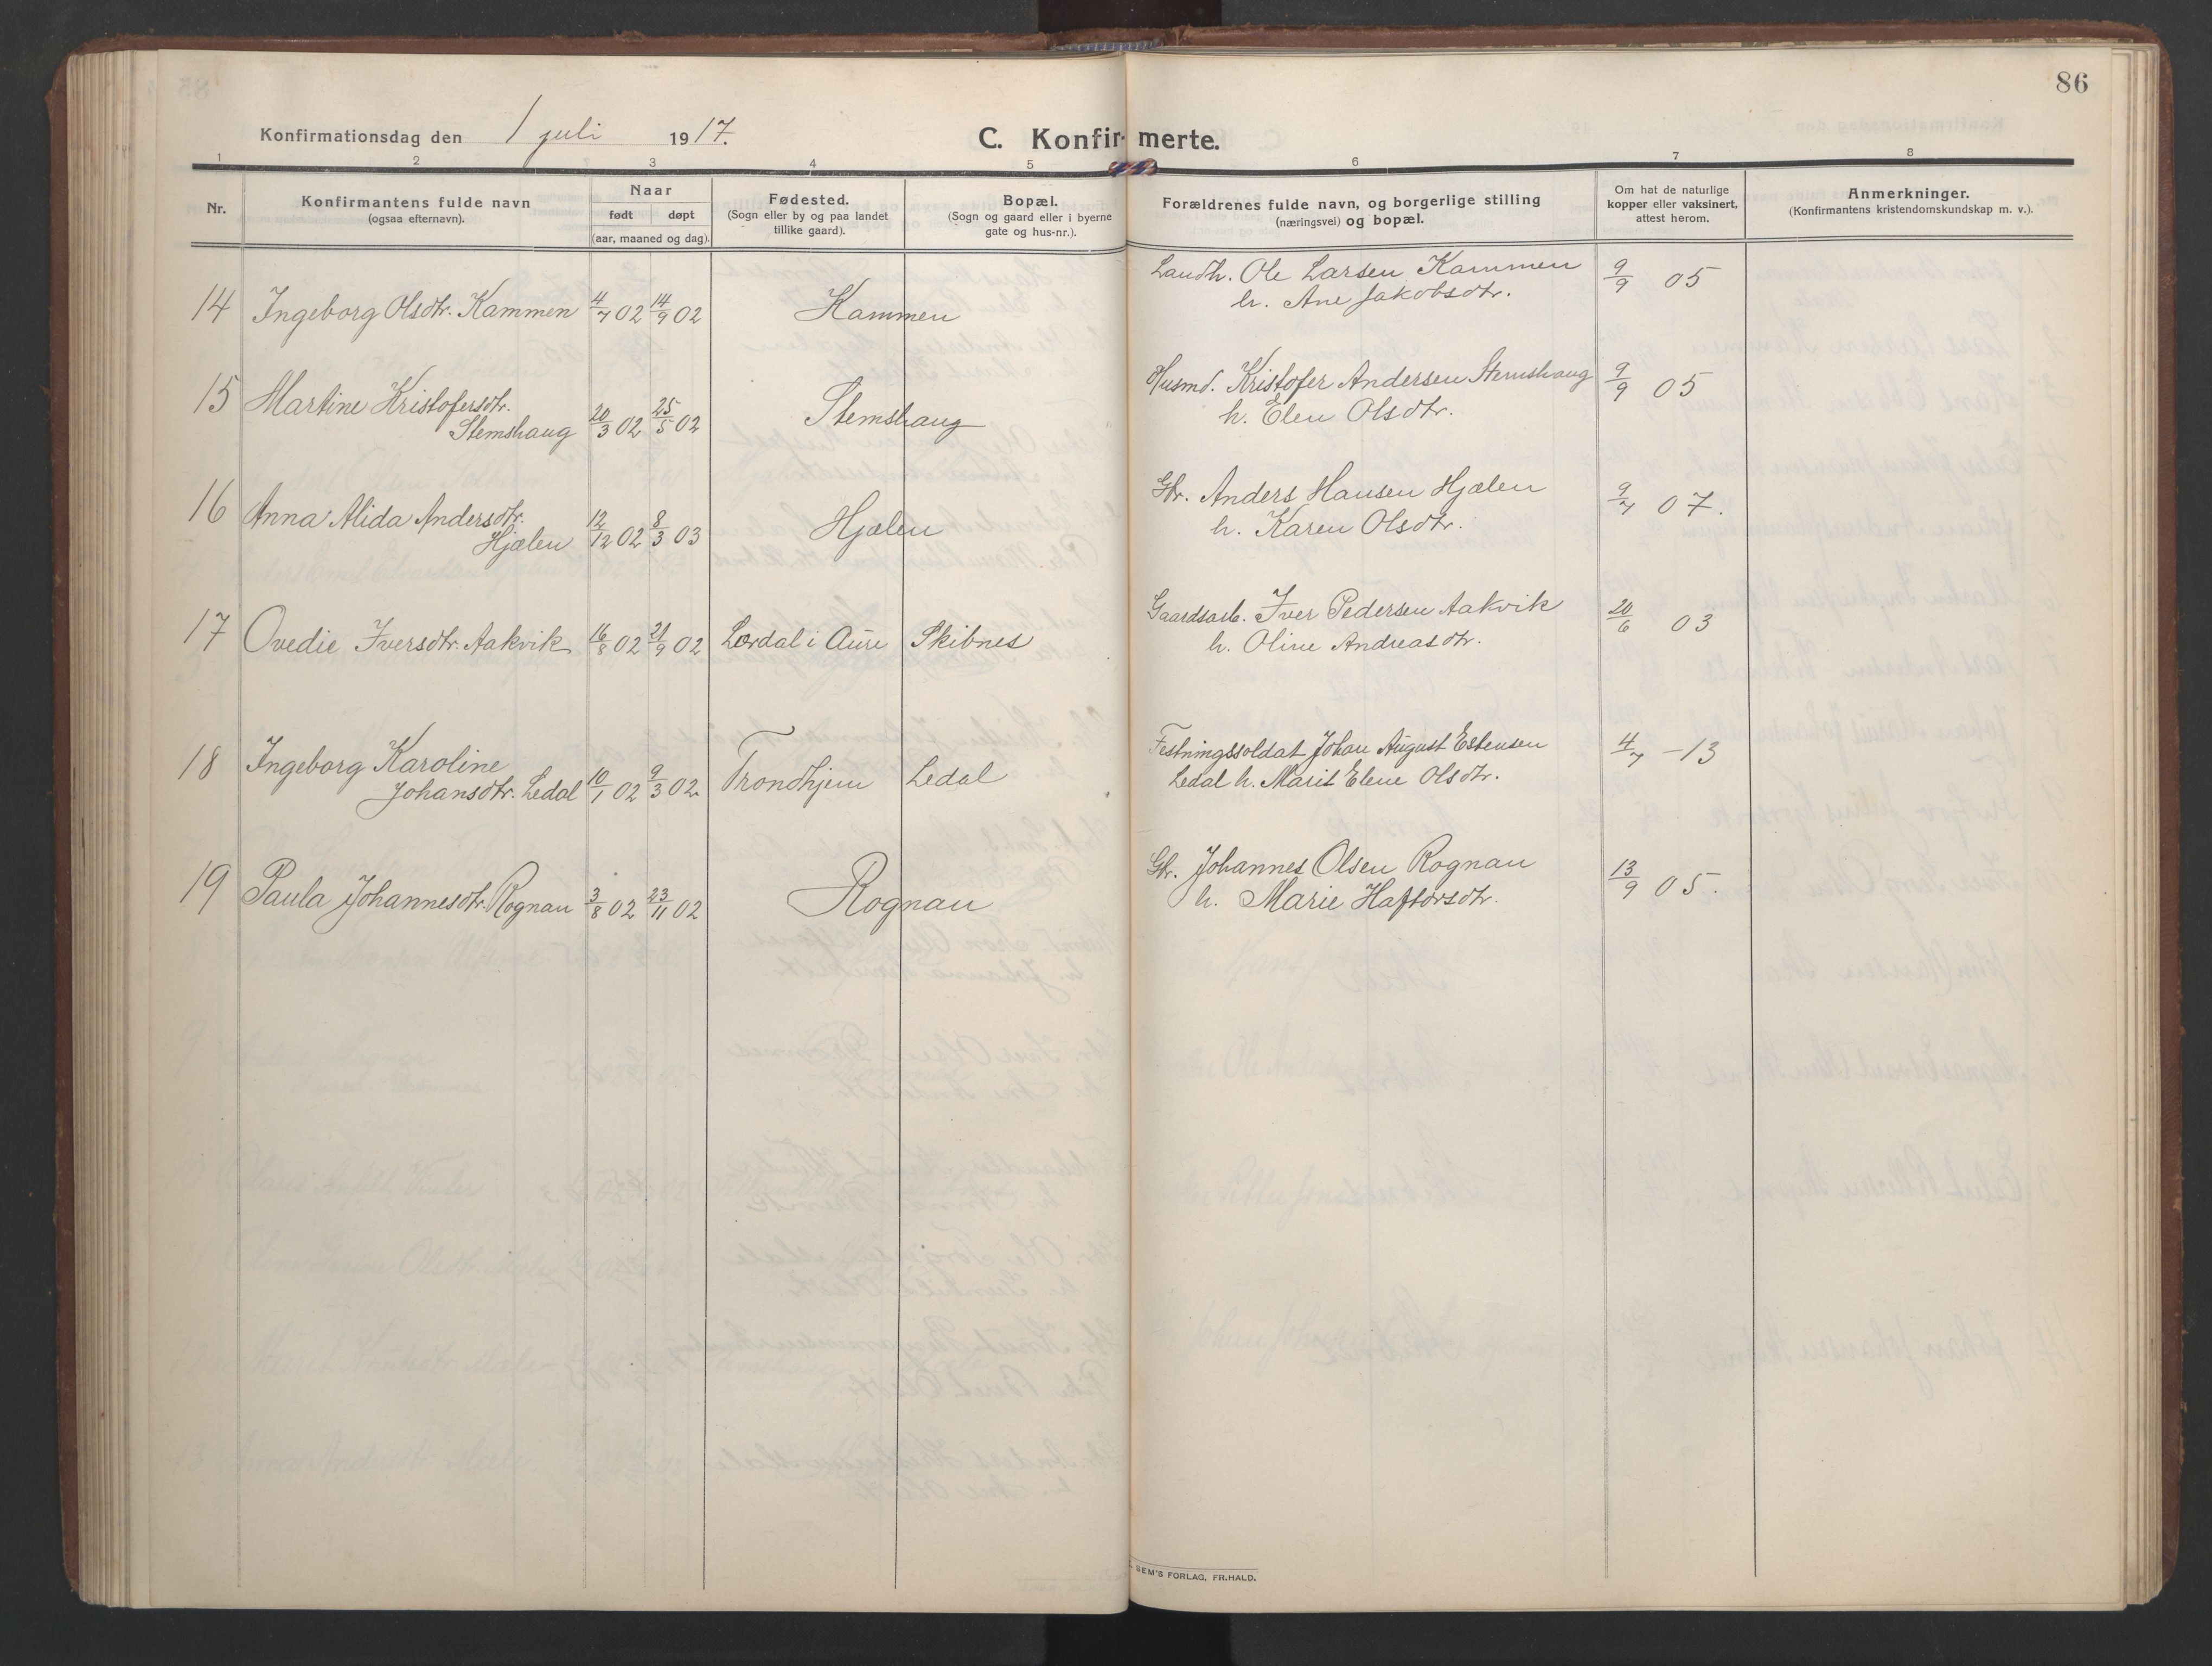 86
Konfirmationsdag den 1 juli 1917.
C. Konfirmerte.
1 2 3 4 5 6 7 8
Nr.
Konfirmantens fulde navn
(ogsaa efternavn).
Naar
født døpt
(aar, maaned og dag).
Fødested.
(Sogn eller by og paa landet
tillike gaard).
Bopæl.
(Sogn og gaard eller i byerne
gate og hus-nr.).
Forældrenes fulde navn, og borgerlige stilling
(næringsvei) og bopæl.
Om hat de naturlige
kopper eller vaksinert,
attest herom.
Anmerkninger.
(Konfirmantens kristendomskundskap m. v.).
14 Ingeborg Olsdtr. Kammen 4/7 02 14/9 02 Kammen
Landh. Ole Larsen Kammen
h. Ane Jakobsdtr.
9/9 05
15 Martine Kristofersdtr.
Stemshaug 20/3 02 25/5 02 Stemshaug
Husmd. Kristofer Andersen Stemshaug
h. Elen Olsdtr.
9/9 05
16 Anna Alida Andersdtr.
Hjælen 12/12 02 8/3 03 Hjælen
Gbr. Anders Hansen Hjælen
h. Karen Olsdtr.
9/7 07.
17 Ovedie Iversdtr. Aakvik 16/8 02 21/9 02 Lerdal i Aure Skibnes
Gaardsarb. Iver Pedersen Aakvik
h. Oline Andreasdtr.
20/6 03
18 Ingeborg Karoline
Johansdtr. Ledal 10/1 02 9/3 02. Trondhjem Ledal
Festningssoldat Johan August Estensen
Ledal h. Marit Elene Olsdtr.
4/7 -13
19 Paula Johannesdtr. Rognan 3/8 02 23/11 02 Rognan
Gbr. Johannes Olsen Rognan
h. Marie Haftorsdtr.
13/9 05.
SEM'S FORLAG, FR.HALD.